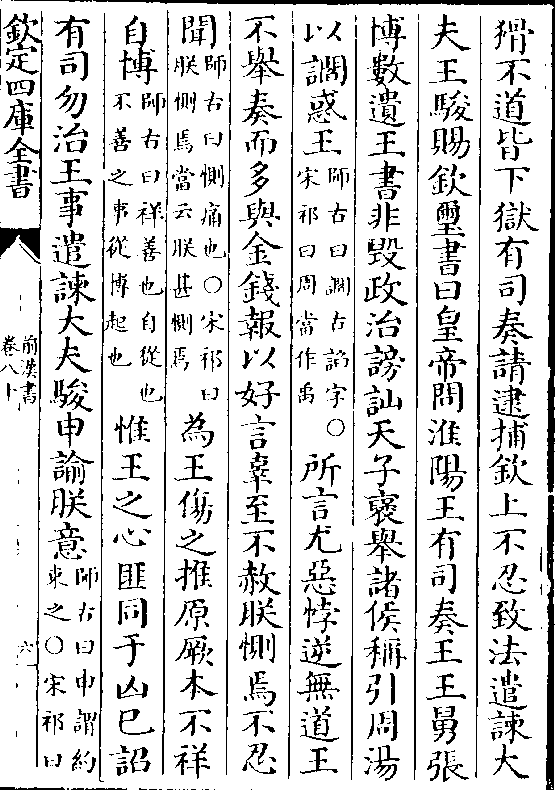 猾不道皆下獄有司奏請逮捕欽上不忍致法遣諫大
夫王駿賜欽璽書曰皇帝問淮陽王有司奏王王舅張
博數遺王書非毀政治謗訕天子襃舉諸侯稱引周湯
以讇惑王師古曰讇古諂字○宋祁曰周當作禹所言尤惡悖逆無道王
不舉奏而多與金錢報以好言辠至不赦朕惻焉不忍
聞師古曰惻痛也○宋祁曰朕惻焉當云朕甚惻焉為王傷之推原厥本不祥
自博師古曰祥善也自從也不善之事從博起也惟王之心匪同于凶已詔
有司勿治王事遣諫大夫駿申諭朕意師古曰申謂約束之○宋祁曰
欽定四庫全書
前漢書
卷八十
六